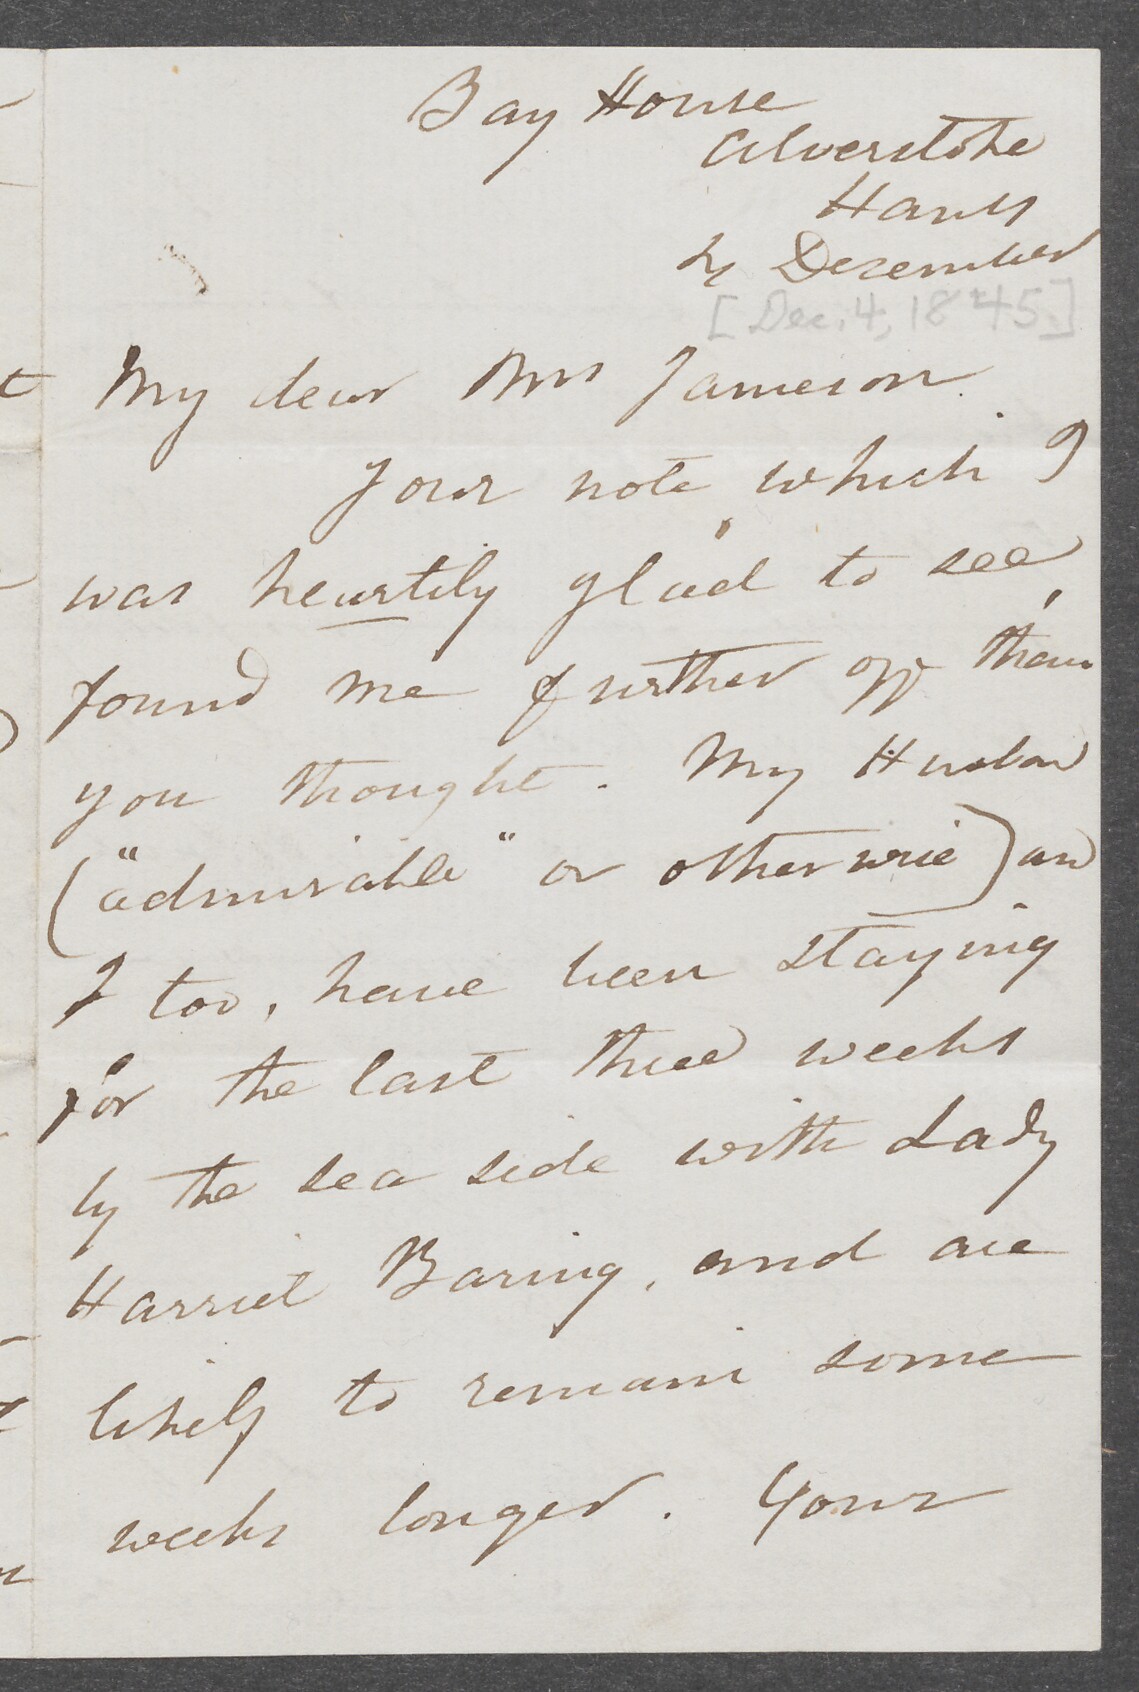 Bay House
Alverstoke
Hants
4 December
[Dec. 4, 1845.]
My dear Mrs Jameson
Your note which I
was heartily glad to see,
found me further off than
you thought. My Husband
("admirable" or otherwise) and
I too, have been staying
for the last three weeks
by the sea side with Lady
Harriet Baring, and are
likely to remain some
weeks longer. Your